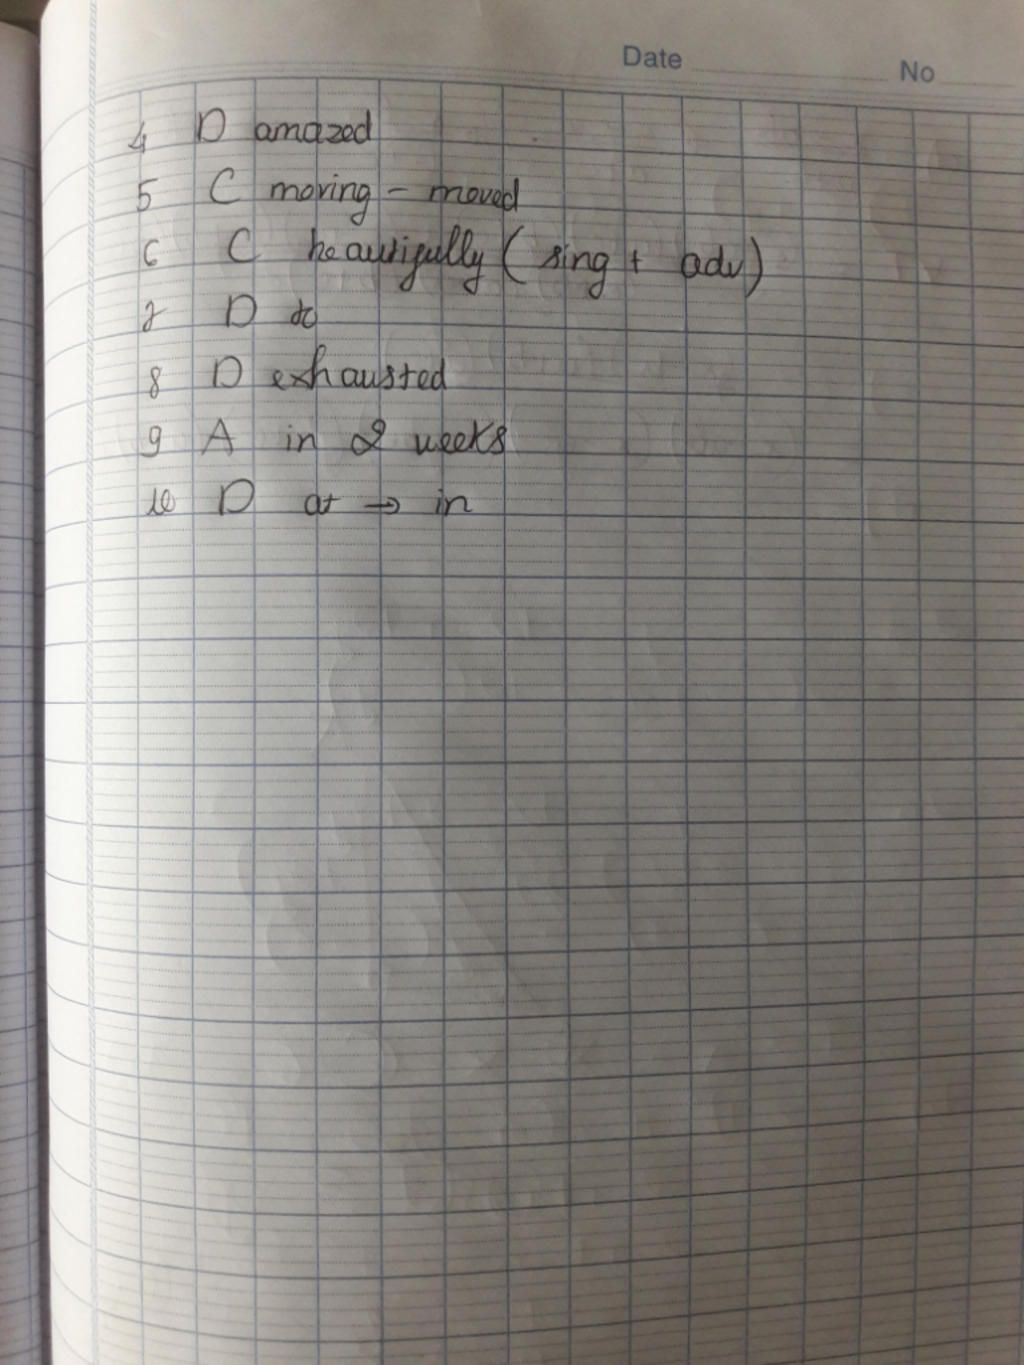 Date No
4 D amazed
5 C moving - moved
6 C beautifully ( sing + adv )
7 D to
8 D exhausted
9 A in 2 weeks
10 D at → in